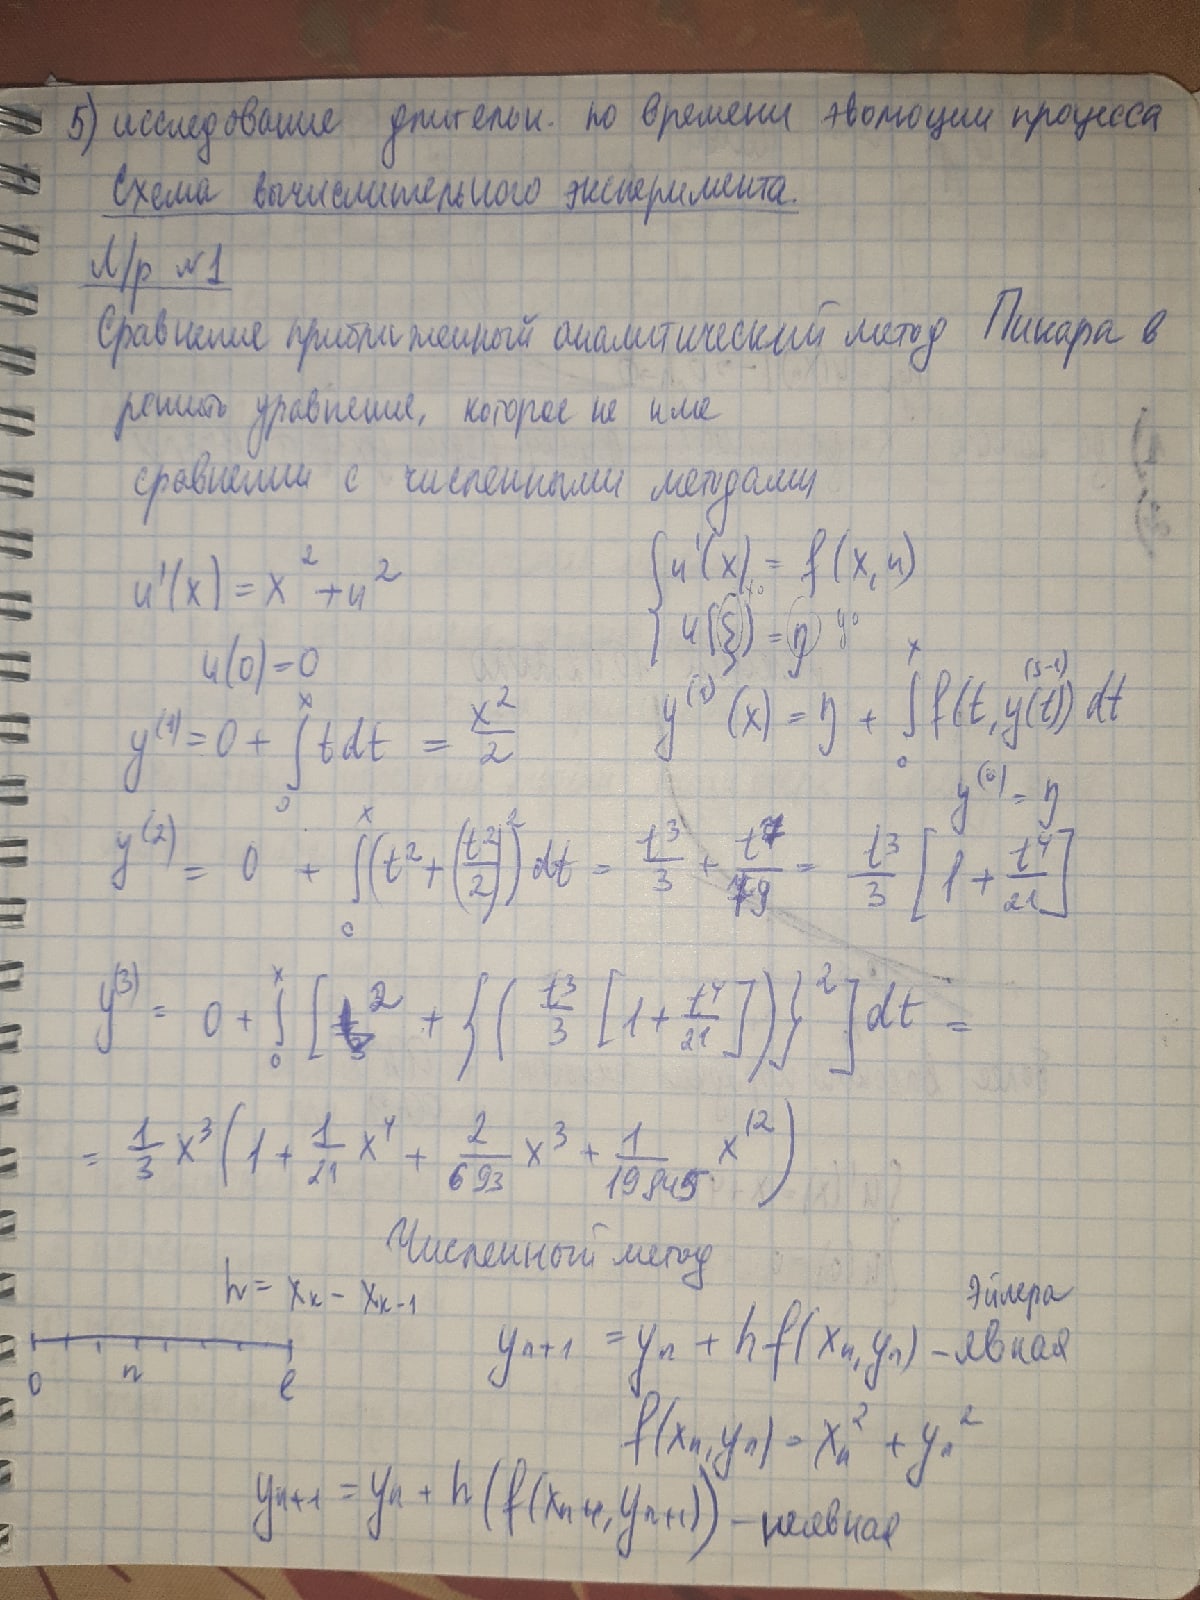 5) исследование длительн. по времени эволюции процесса
Схема вычислительного эксперимента.
Л/р №1
Сравнение приближенный аналитический метод Пикара в
решить уравнение, которое не име
сравнении с численными методами
u'(x) = x² + u²
u(0) = 0
{ u'(x) = f(x, u)
u(ξ) = η y₀
y⁽¹⁾ = 0 + ∫₀ˣ t dt = x²/2
y⁽ˢ⁾(x) = η + ∫₀ˣ f(t, y⁽ˢ⁻¹⁾(t)) dt
y⁽⁰⁾ = η
y⁽²⁾ = 0 + ∫₀ˣ (t² + (t²/2)²) dt = t³/3 + t⁷/79 = t³/3 [1 + t⁴/21]
y⁽³⁾ = 0 + ∫₀ˣ [t² + {(t³/3 [1 + t⁴/21])}²] dt =
= 1/3 x³ (1 + 1/21 x⁴ + 2/693 x³ + 1/19845 x¹²)
Численный метод
h = xₖ - xₖ₋₁
0 n l
Эйлера
yₙ₊₁ = yₙ + h f(xₙ, yₙ) - явная
f(xₙ, yₙ) = xₙ² + yₙ²
yₙ₊₁ = yₙ + h (f(xₙ₊₁, yₙ₊₁)) - неявная